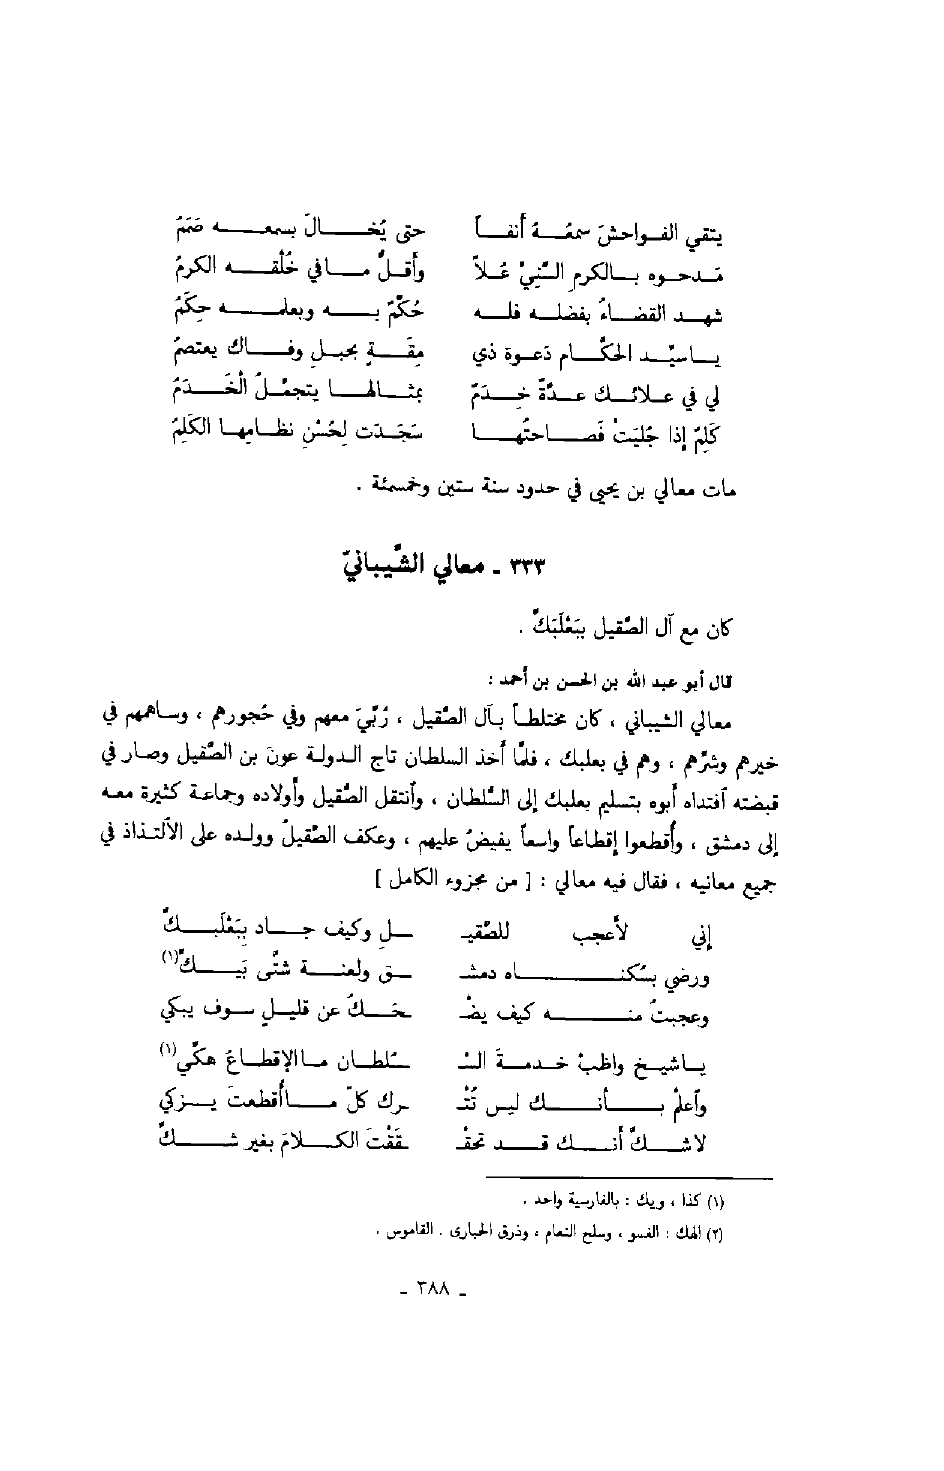 يتقي الفواحشَ سمعُه أنفاً حتى يُخالَ بسمعه صَمَمُ
مدحوه بالكرم السَّنِيِّ عُلاً وأقلُّ ما في خُلْقه الكرمُ
شهد القضاءُ بفضله فله حُكْمٌ به وبعلمه حِكَمُ
يا سيِّد الحكّام دَعوة ذي مِقَةٍ بحبلِ وفاك يعتصمُ
لي في علائك عدّةٌ خِدَمٌ بمثالها يتجمّلُ الْخَدَمُ
كَلِمٌ إذا جُلِيَتْ فَصاحتُها سَجَدَت لِحُسْنِ نظامِها الكَلِمُ
مات معالي بن يحيى في حدود سنة ستين وخمسمئة .
٣٣٣ ـ معالي الشَّيبانيّ
كان مع آل الصَّقيل بِبَعْلَبَكَّ .
قال أبو عبد الله بن الحسن بن أحمد :
معالي الشيباني ، كان مختلطاً بآل الصقيل ، رُبِّيَ معهم وفي حُجورهم ، وساهمهم في
خيرهم وشرِّهم ، وهم في بعلبك ، فلمّا أخذ السلطان تاج الدولة عون بن الصَّقيل وصار في
قبضته اَفتداه أبوه بتسليم بعلبك إلى السُّلطان ، واَنتقل الصَّقيل وأولاده وجماعة كثيرة معه
إلى دمشق ، وأُقطعوا إقطاعاً واسعاً يفيضُ عليهم ، وعكف الصَّقيلُ وولده على الاَلتذاذ في
جميع معانيه ، فقال فيه معالي : [ من مجزوء الكامل ]
إني لأعجب للصَّقيـ ـل وكيف جاد بِبَعْلَبَكَّ
ورضي بسُكناه دمشـ ـق ولعنة شتَّى بَيَكّ(١)
وعجبتُ منه كيف يضْـ ـحَكُ عن قليلٍ سوف يبكي
يا شيخ واظبْ خدمةَ السُّـ ـلطان ما الإقطاعُ هكّي(١)
واَعلمْ بأنك ليس تُتْـ ـرك كلّ ما أُقطعتَ يزكي
لا شكَّ أنك قد تحقْـ ـقَقْتَ الكلامَ بغير شكِّ
(١) كذا ، ويك : بالفارسية واحد .
(٢) الهك : الفسو ، وسلح النعام ، وذرق الحبارى . القاموس .
ـ ٣٨٨ ـ